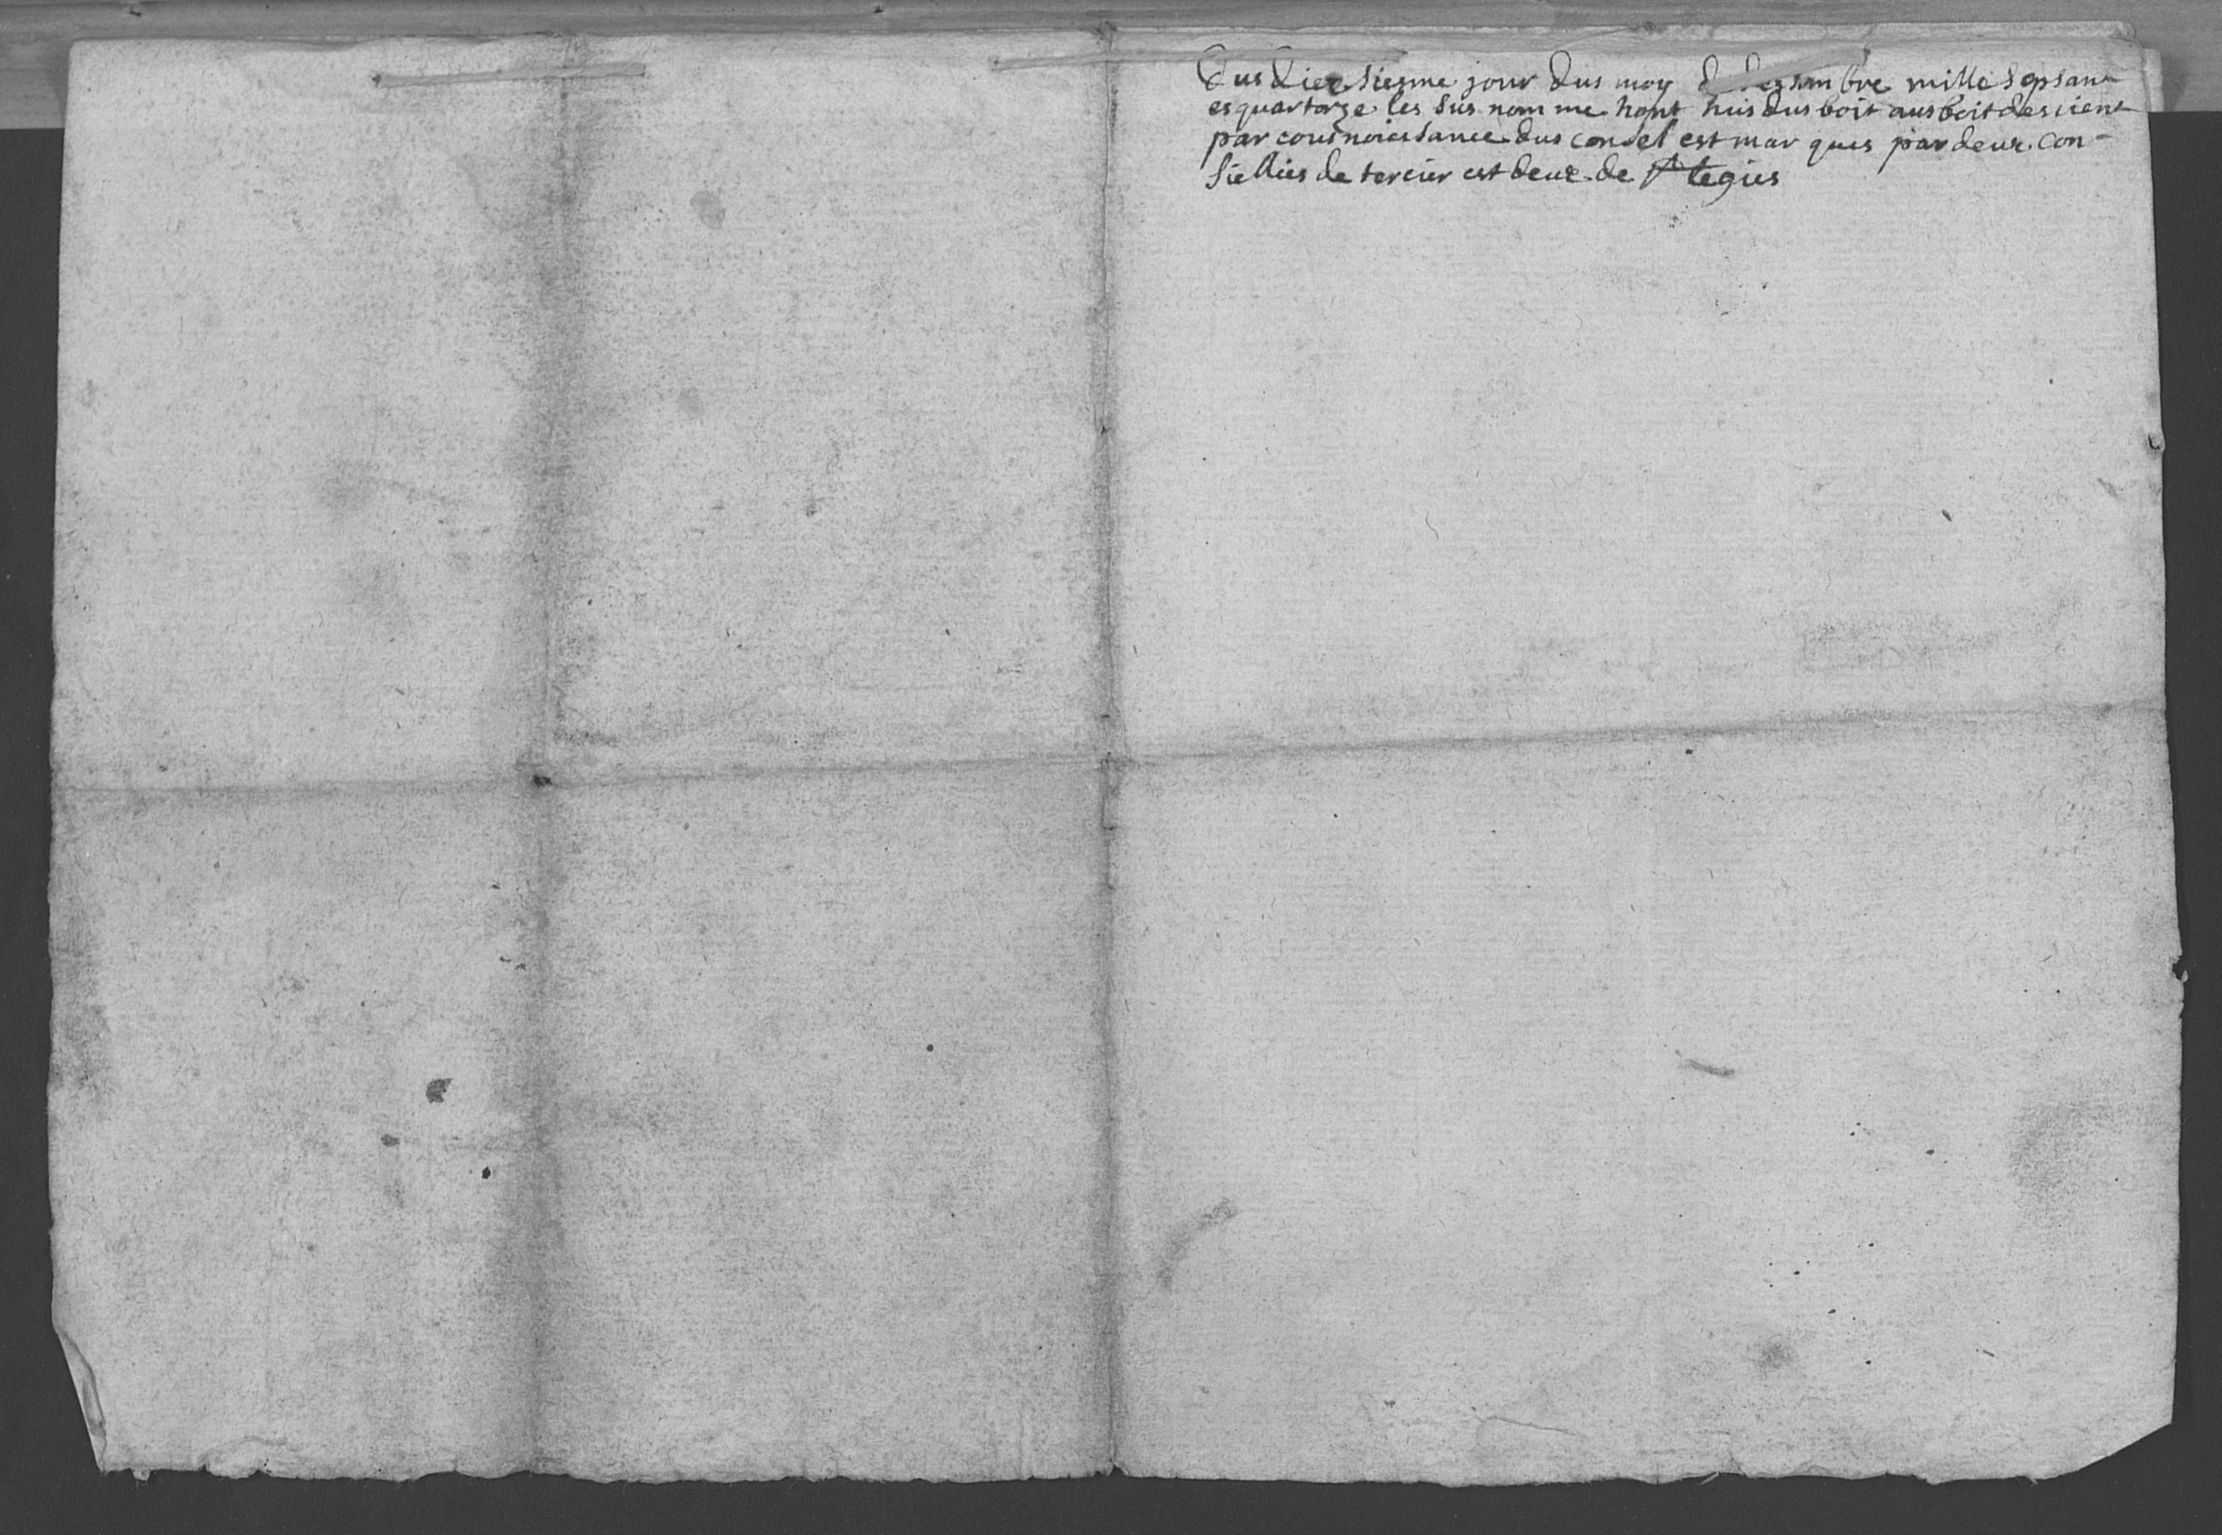 Dus diex siezme jour dus moy d dezsambre mille sepsant
es quartorze les sus nom me hont huis dus boit aus boit des cient
par cousnoiessance dus consel est mar ques par deux con-
siellies de tercier est deux de